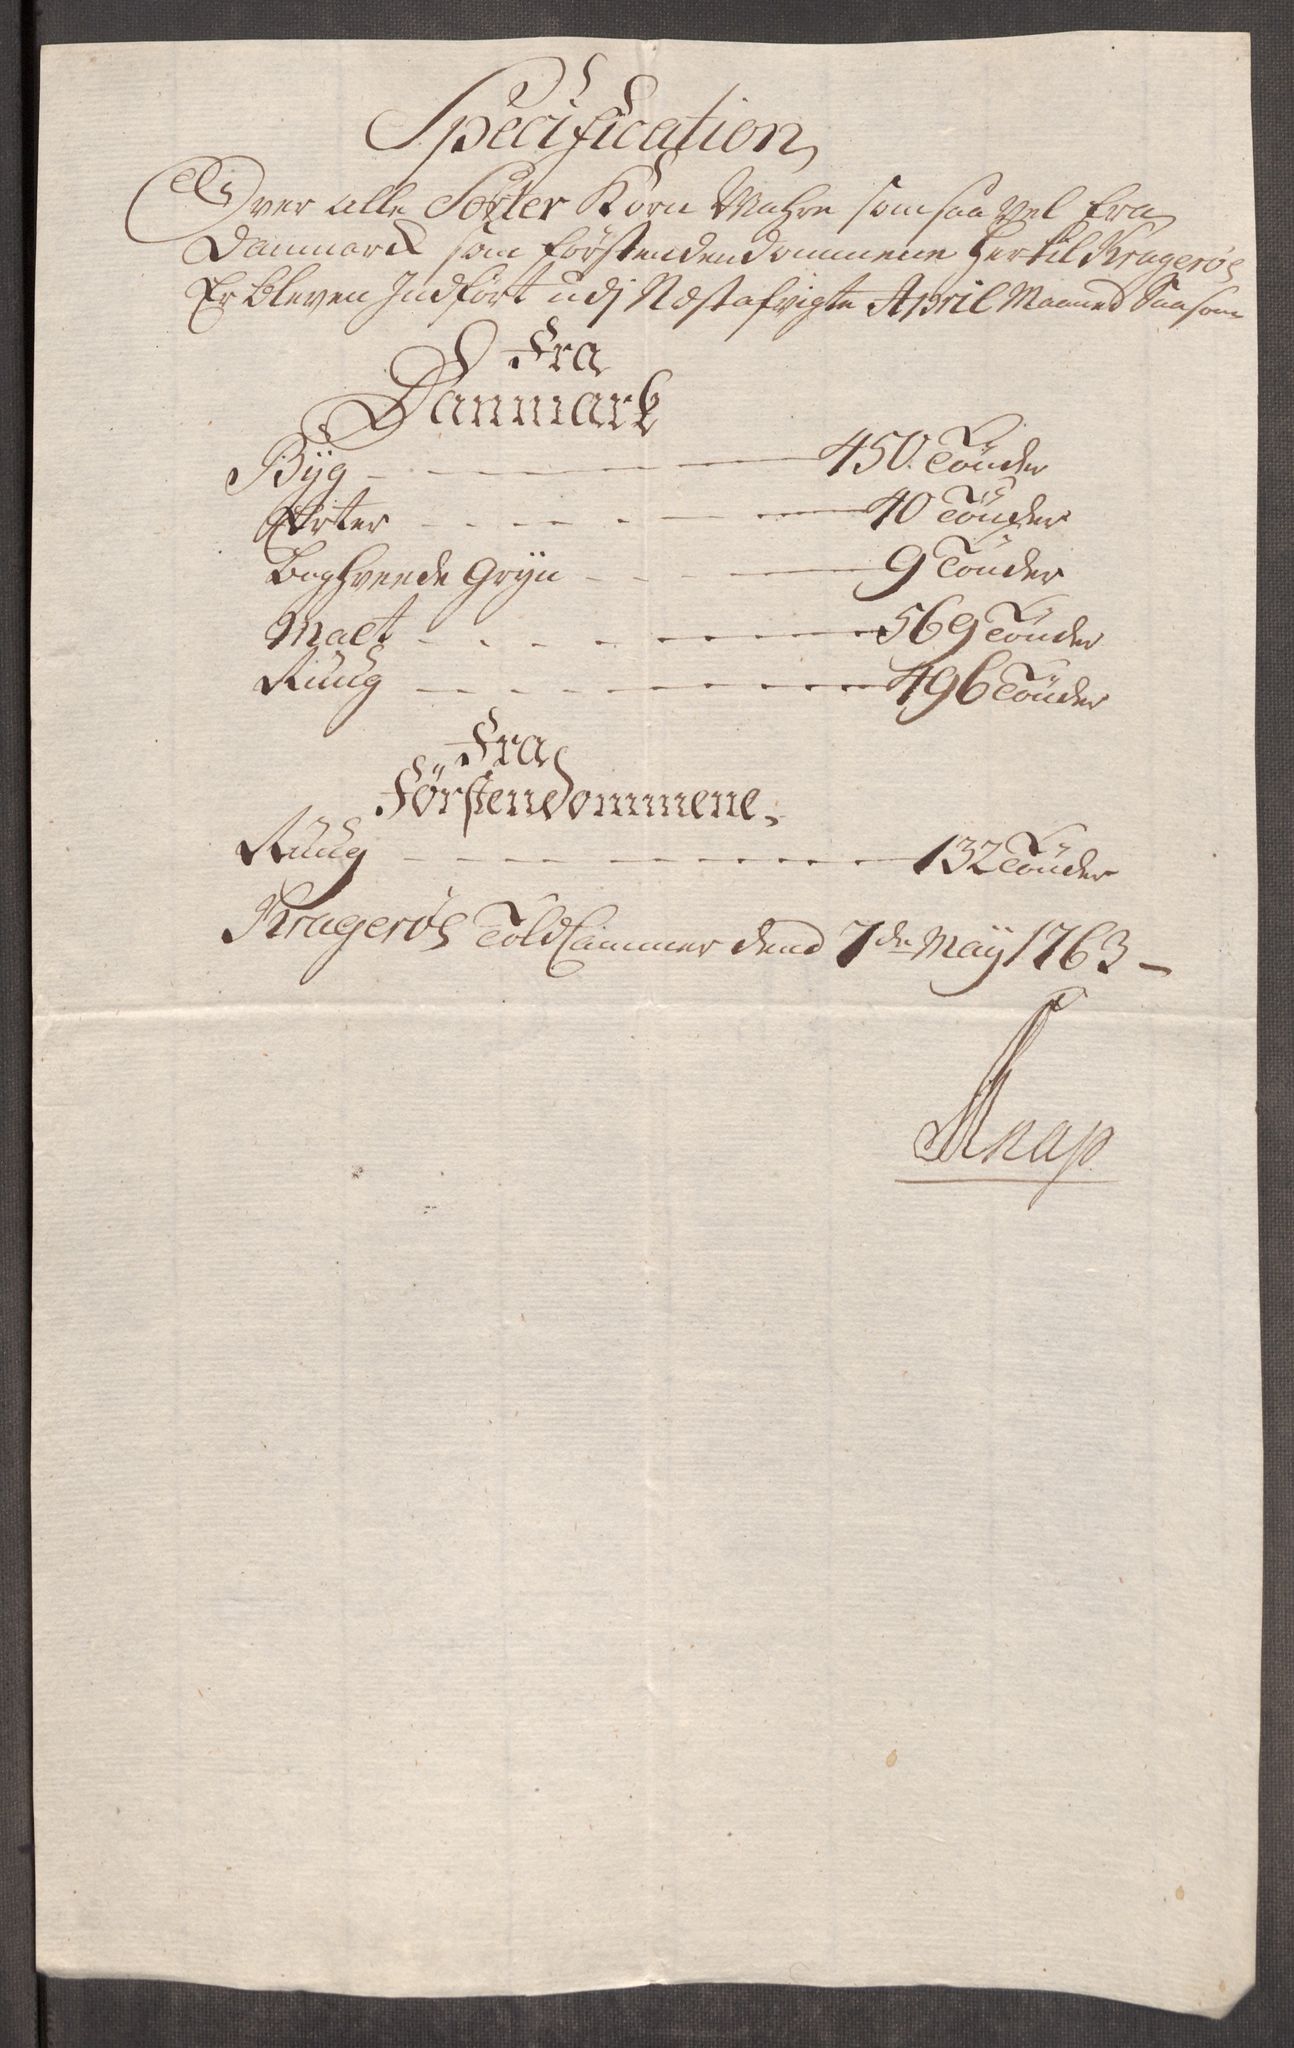 Specification
Over alle Sorter Korn Wahre som saa vel fra
Danmark som Førstendendommene hertil Kragerøe
Er bleven Indført udj Næstafvigte April Maaned Saasom
Fra
Danmark
Byg - - - - - 450 Tönder
Erter - - - - - 40 Tönder
Boghveede Gryn - - - - 9 Tönder
Malt - - - - - 569 Tönder
Ruug - - - - - 496 Tönder
Fra
Førstendommene.
Ruug - - - - - 132 Tönder
Kragerøe Told Cammer dend 7de May 1763 -
Knap